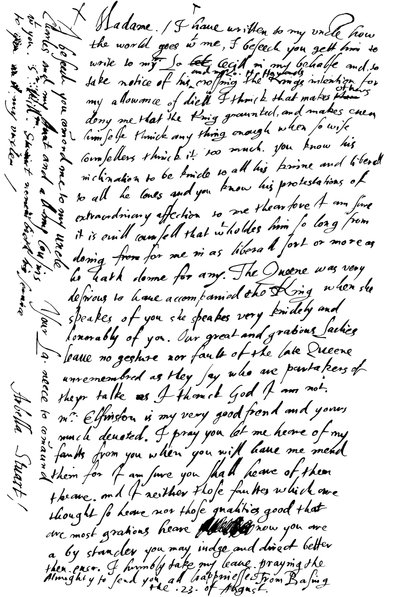 Madame. / I haue written to my uncle how
the world goes wt me, I beseech you gett him to
write to mr. So Cecill in my behalfe and so
take notice of his crossing the Kings intention for
my allowance of diett I thinck that makes others
deny me that the King graunted, and makes euen
himselfe thinck any thing enough when so wise
counsellers thinck it too much. you know his
inclination to be kinde to all his kinne and liberall
to all he loues and you know his protestations of
extraordinary affection to me thearfore I am sure
it is euill counsell that wtholdes him so long from
doing for me in as liberall sort or more as
he hath donne for any. The Queene was very
desirous to haue accompanied the King when she
speakes of you she speakes very kindely and
honorably of you. Our great and gratious Ladies
leaue no gesture nor fault of the late Queene
unremembred as they say who are partakers of
theyr talke as I thanck God I am not.
mr. Elfinston is my very good frend and yours
much deuoted. I pray you let me heare of my
faults from you when you will haue me mend
them for I am sure you shall heare of them
theare. and I neither those faultes which are
thought so heare nor those qualities good that
are most gratious heare now you are
a by stander you may iudge and direct better
then euer. I humbly take my leaue. praying the
Almighty to send you all happinesse. From Basing
the .23. of August.
Your La. neece to comaund
Arbella Stuart /
I beseech you comend me to my uncle
Charles and my Aunt and all my Cousins